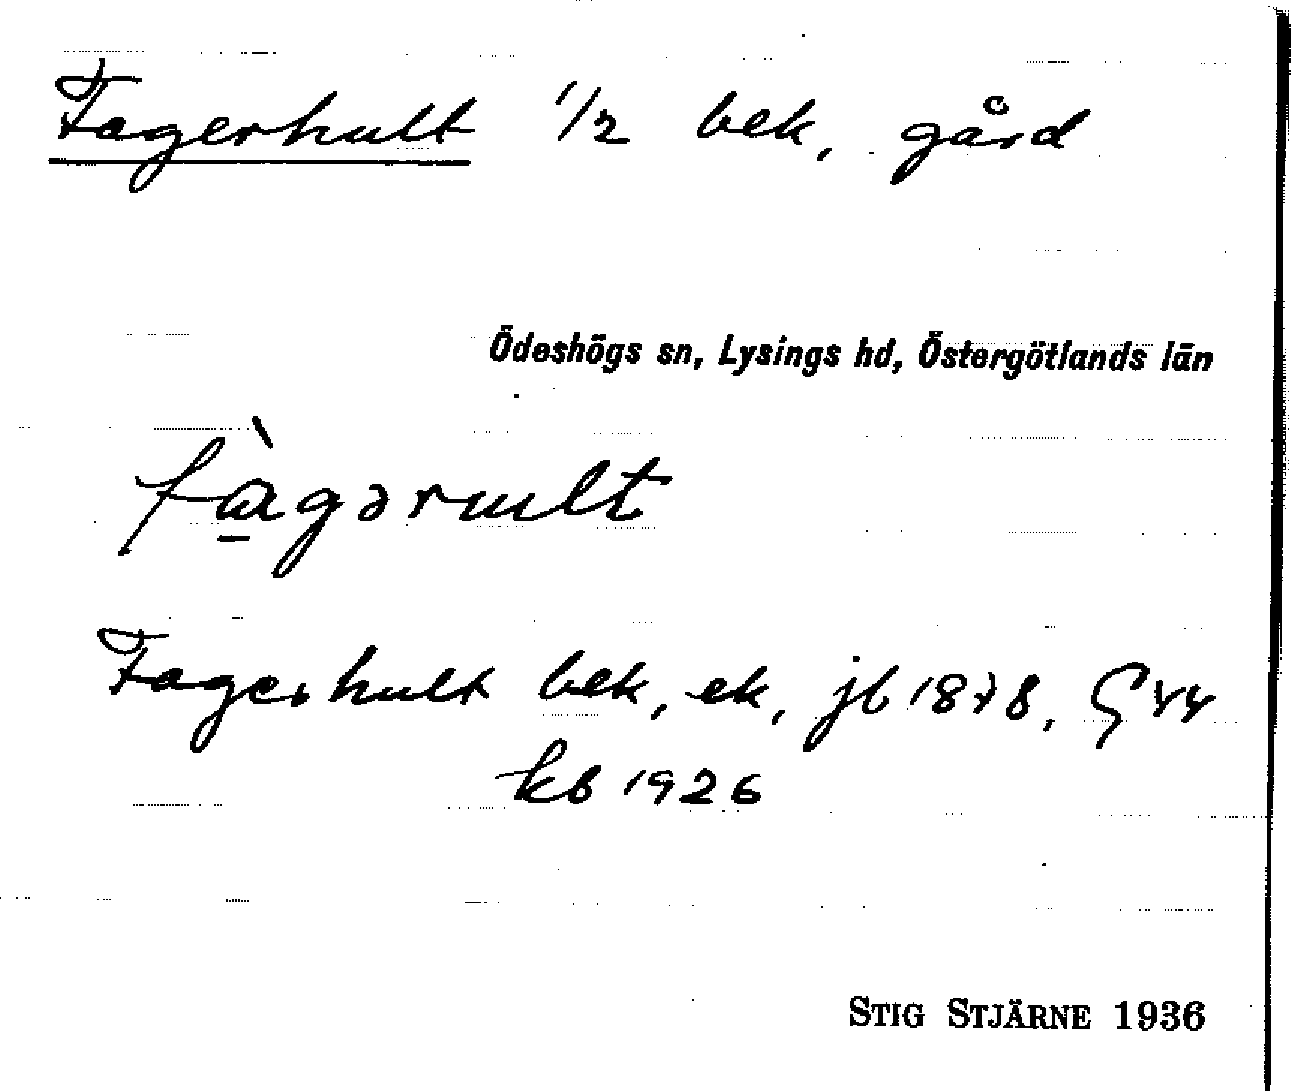 Fagerhult 1/2 bek, gård
Ödeshögs sn, Lysings hd, Östergötlands län
fàgərult
Fagerhult bek, ek, jb 1878,
kb 1926
STIG STJÄRNE 1936